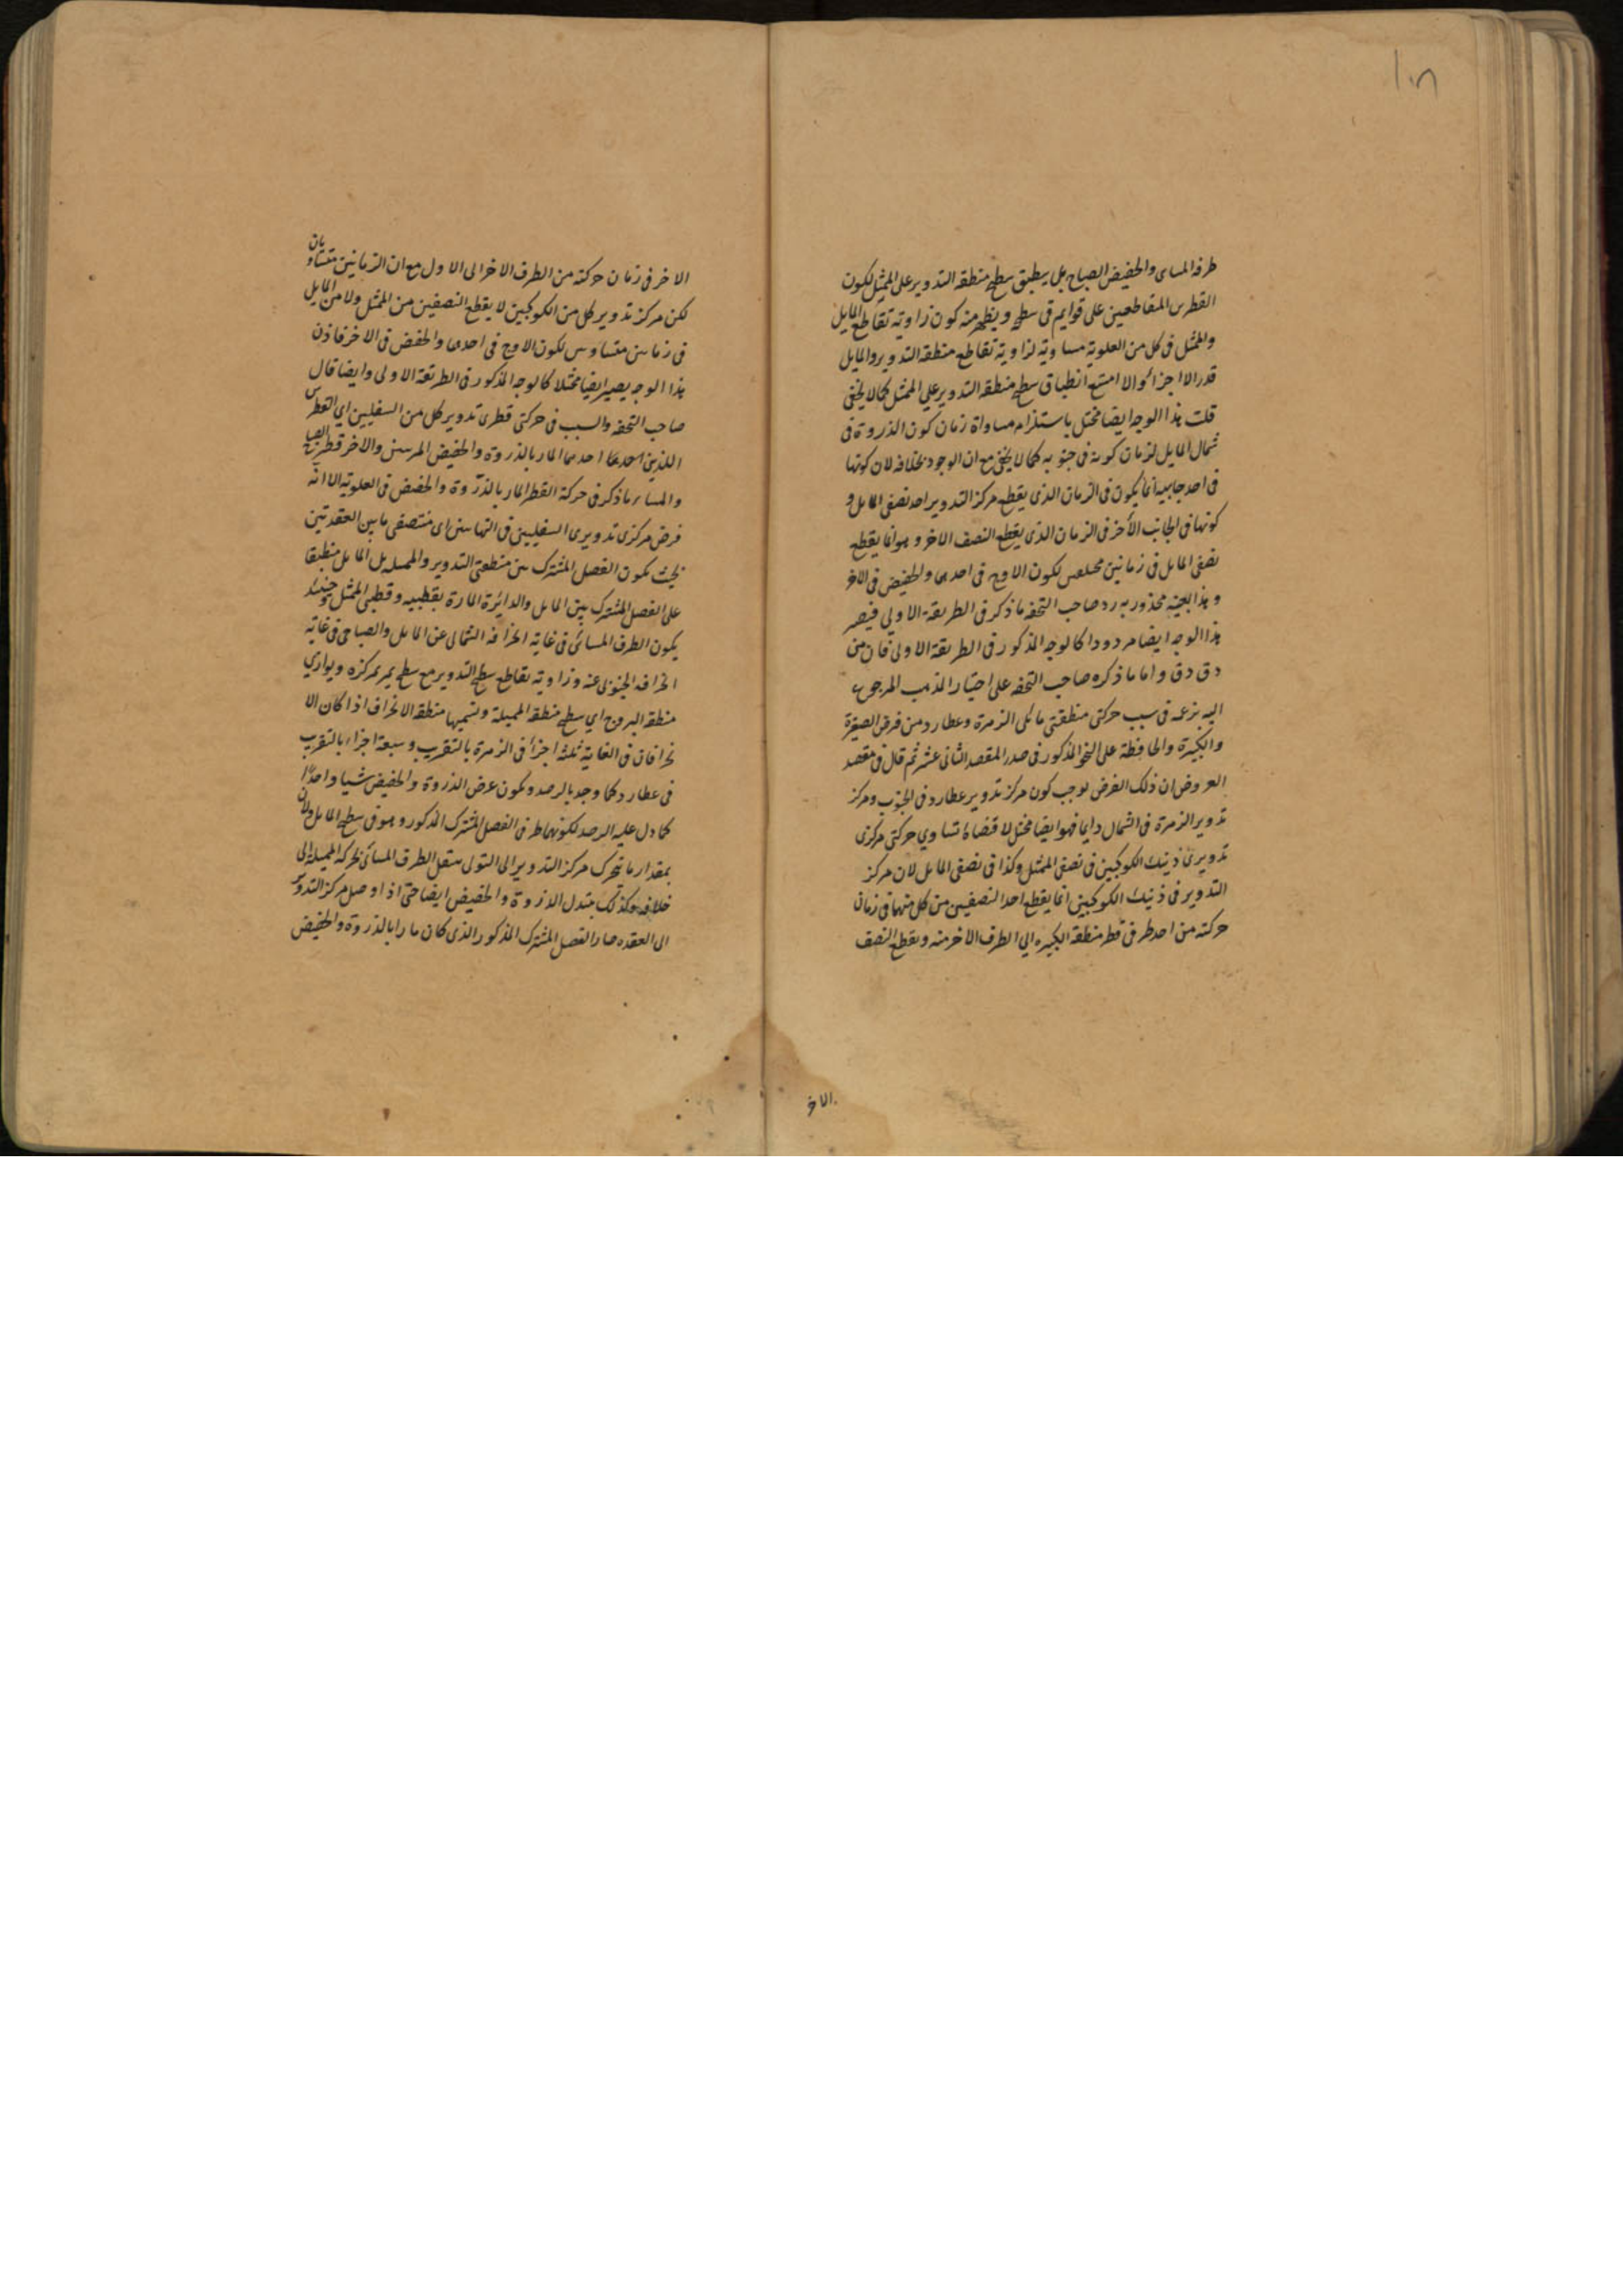 ١٠٨
طرفه المسائى والحضيض الصباحى بل ينطبق سطح منطقه التدوير على الممثل لكون
القطرين المتقاطعين على قوايم فى سطحه ويظهر منه كون زاوية تقاطع المايل
والممثل فى كل من العلوية مساوية لزاوية تقاطع منطقه التدوير والمايل
قدر الاجزا والا امتنع انطباق سطح منطقه التدوير على الممثل كما لا يخفى
قلت هذا الوجه ايضا مختل باستلزام مساواة زمان كون الذروة فى
شمال المايل لزمان كونه فى جنوبه كما لا يخفى مع ان الوجود بخلافه لان كونها
فى احد جانبيه انما يكون فى الزمان الذى يقطع مركز التدوير احد نصفى المايل و
كونها فى الجانب الاخر فى الزمان الذى يقطع النصف الاخر و هو انما يقطع
نصفى المايل فى زمانين مختلفين لكون الاوج فى احدهما والحضيض فى الاخر
و هذا بعينه محذور به رد صاحب التحفه ما ذكر فى الطريقة الاولى فيصير
هذا الوجه ايضا مردودا كالوجه المذكور فى الطريقة الاولى فان من
دق دق واما ما ذكره صاحب التحفه على اختيار المذهب المرجوع
اليه بزعمه فى سبب حركتى منطقتى مائلى الزهرة وعطارد من فرض الصغيرة
والكبيرة والحافظة على النحو المذكور فى صدر المقصد الثانى عشر ثم قال فى مقصد
العروض ان ذلك الفرض يوجب كون مركز تدوير عطارد فى الجنوب ومركز
تدوير الزهرة فى الشمال دايما فهو ايضا مختل لاقتضائه تساوى حركتى مركزى
تدويرى ذينك الكوكبين فى نصفى الممثل وكذا فى نصفى المايل لان مركز
التدوير فى ذينك الكوكبين انما يقطع احد النصفين من كل منهما فى زمان
حركته من احد طرفى قطر منطقة الكبيره الى الطرف الاخر منه ويقطع النصف
الاخر
الاخر فى زمان حركته من الطرف الاخر الى الاول مع ان الزمانين متساويان
لكن مركز تدوير كل من الكوكبين لا يقطع النصفين من الممثل ولا من المايل
فى زمانين متساويين لكون الاوج فى احدهما والحضيض فى الاخر فاذن
هذا الوجه يصير ايضا مختلا كالوجه المذكور فى الطريقة الاولى وايضا قال
صاحب التحفه والسبب فى حركتى قطرى تدوير كل من السفليين اى القطرين
اللذين احدهما المار بالذروة والحضيض المرئيين والاخر قطر الصباح
والمساء ما ذكر فى حركة القطر المار بالذروة والحضيض فى العلوية الا انه
فرض مركزى تدويرى السفليين فى النهايتين اى منتصفى ما بين العقدتين
بحيث يكون الفصل المشترك بين منطقتى التدوير والمميلة بل المايل منطبقا
على الفصل المشترك بين المايل والدائرة المارة بقطبيه وقطبى الممثل وحينئذ
يكون الطرف المسائى فى غاية انحرافه الشمالى عن المايل والصباحى فى غاية
انحرافه الجنوبى عنه وزاوية تقاطع سطح التدوير مع سطح يمر بمركزه ويوازى
منطقه البروج اي سطح منطقه المميلة ونسميها منطقه الانحراف اذا كان الا
نحرافان فى الغاية ثلثة اجزاء فى الزهرة بالتقريب وسبعة اجزاء بالتقريب
فى عطارد كما وجد بالرصد ويكون عرض الذروة والحضيض شيا واحدا
كما دل عليه الرصد لكونهما طرفى الفصل المشترك المذكور وهو فى سطح المايل ولان
بمقدار ما يتحرك مركز التدوير الى التوالى ينتقل الطرف المسائى بحركة المميلة الى
خلافه وكذلك يتبدل الذروة والحضيض ايضا حتى اذا وصل مركز التدوير
الى العقده صار الفصل المشترك المذكور الذى كان مارا بالذروة والحضيض